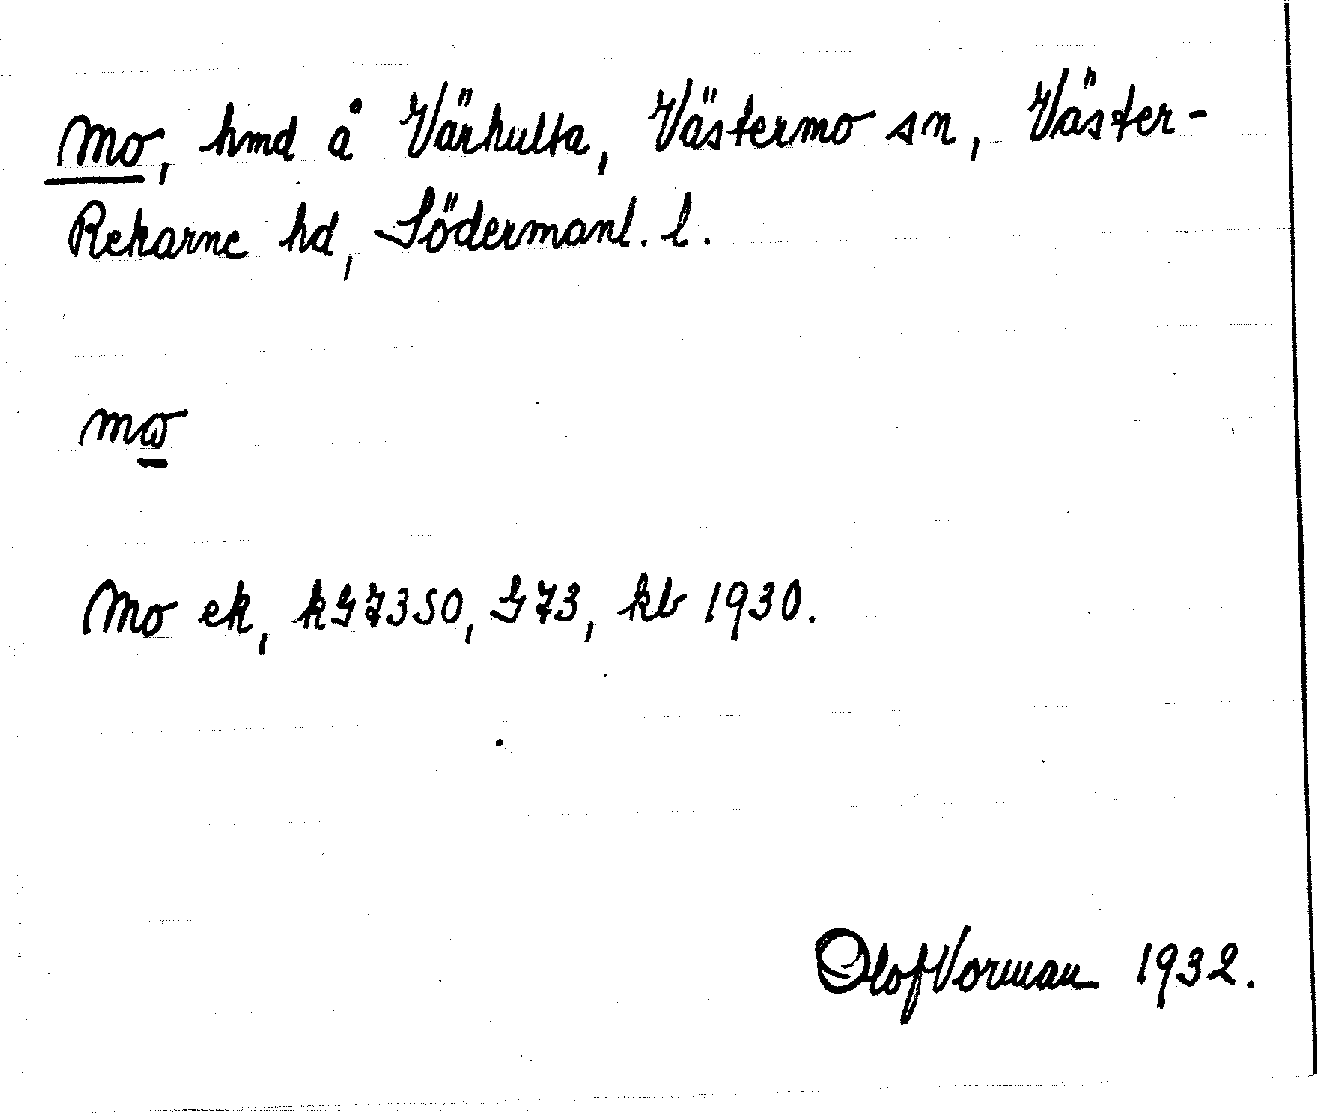 Mo, hmd å Värhulta, Västermo sn, Väster-
Rekarne hd, Södermanl. l.
mɷ
Mo ek, kG7350, G73, kb 1930.
Olof Vorman 1932.